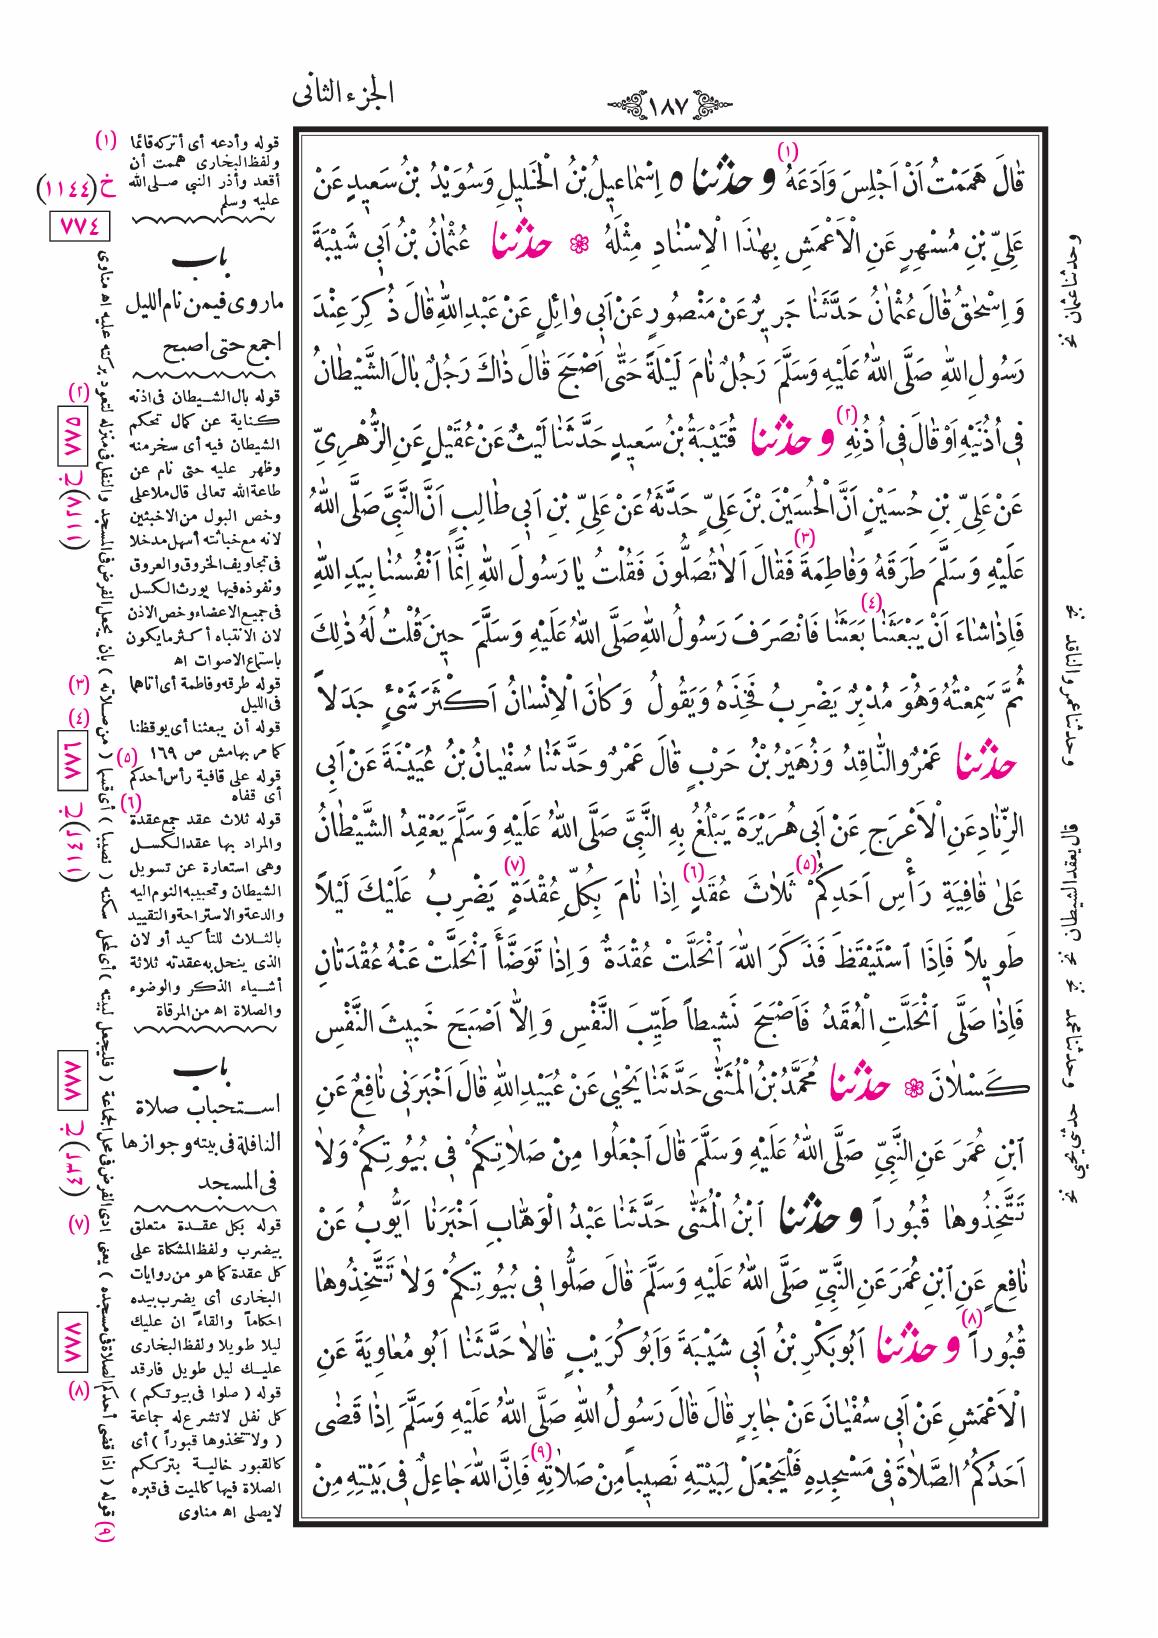 الجزء الثانى
﴿١٨٧﴾
قَالَ هَمَمْتُ اَنْ اَجْلِسَ وَاَدَعَهُ (١) و حدثنا ٥ اِسْمَاعِيلُ بْنُ الْخَلِيلِ وَسُوَيْدُ بْنُ سَعِيدٍ عَنْ
عَلِىِّ بْنِ مُسْهِرٍ عَنِ الْاَعْمَشِ بِهٰذَا الْاِسْنَادِ مِثْلَهُ ❁ حدثنا عُثْمَانُ بْنُ اَبِى شَيْبَةَ
وَ اِسْحٰقُ قَالَ عُثْمَانُ حَدَّثَنَا جَرِيرٌ عَنْ مَنْصُورٍ عَنْ اَبِى وَائِلٍ عَنْ عَبْدِ اللّٰهِ قَالَ ذُكِرَ عِنْدَ
رَسُولِ اللّٰهِ صَلَّى اللّٰهُ عَلَيْهِ وَسَلَّمَ رَجُلٌ نَامَ لَيْلَةً حَتّٰى اَصْبَحَ قَالَ ذَاكَ رَجُلٌ بَالَ الشَّيْطَانُ
فِى اُذُنَيْهِ اَوْ قَالَ فِى اُذُنِهِ (٢) و حدثنا قُتَيْبَةُ بْنُ سَعِيدٍ حَدَّثَنَا لَيْثٌ عَنْ عُقَيْلٍ عَنِ الزُّهْرِىِّ
عَنْ عَلِىِّ بْنِ حُسَيْنٍ اَنَّ الْحُسَيْنَ بْنَ عَلِىٍّ حَدَّثَهُ عَنْ عَلِىِّ بْنِ اَبِى طَالِبٍ اَنَّ النَّبِىَّ صَلَّى اللّٰهُ
عَلَيْهِ وَسَلَّمَ طَرَقَهُ وَفَاطِمَةَ (٣) فَقَالَ اَلَا تُصَلُّونَ فَقُلْتُ يَا رَسُولَ اللّٰهِ اِنَّمَا اَنْفُسُنَا بِيَدِ اللّٰهِ
فَاِذَا شَاءَ اَنْ يَبْعَثَنَا (٤) بَعَثَنَا فَانْصَرَفَ رَسُولُ اللّٰهِ صَلَّى اللّٰهُ عَلَيْهِ وَسَلَّمَ حِينَ قُلْتُ لَهُ ذٰلِكَ
ثُمَّ سَمِعْتُهُ وَهُوَ مُدْبِرٌ يَضْرِبُ فَخِذَهُ وَيَقُولُ وَكَانَ الْاِنْسَانُ اَكْثَرَ شَىْءٍ جَدَلاً
حدثنا عَمْرٌو النَّاقِدُ وَزُهَيْرُ بْنُ حَرْبٍ قَالَ عَمْرٌو حَدَّثَنَا سُفْيَانُ بْنُ عُيَيْنَةَ عَنْ اَبِى
الزِّنَادِ عَنِ الْاَعْرَجِ عَنْ اَبِى هُرَيْرَةَ يَبْلُغُ بِهِ النَّبِىَّ صَلَّى اللّٰهُ عَلَيْهِ وَسَلَّمَ يَعْقِدُ الشَّيْطَانُ
عَلٰى قَافِيَةِ رَأْسِ اَحَدِكُمْ (٥) ثَلَاثَ عُقَدٍ (٦) اِذَا نَامَ بِكُلِّ عُقْدَةٍ (٧) يَضْرِبُ عَلَيْكَ لَيْلاً
طَوِيلاً فَاِذَا اسْتَيْقَظَ فَذَكَرَ اللّٰهَ انْحَلَّتْ عُقْدَةٌ وَاِذَا تَوَضَّأَ انْحَلَّتْ عَنْهُ عُقْدَتَانِ
فَاِذَا صَلَّى انْحَلَّتِ الْعُقَدُ فَاَصْبَحَ نَشِيطاً طَيِّبَ النَّفْسِ وَاِلَّا اَصْبَحَ خَبِيثَ النَّفْسِ
كَسْلَانَ ❁ حدثنا مُحَمَّدُ بْنُ الْمُثَنّٰى حَدَّثَنَا يَحْيٰى عَنْ عُبَيْدِ اللّٰهِ قَالَ اَخْبَرَنِى نَافِعٌ عَنِ
ابْنِ عُمَرَ عَنِ النَّبِىِّ صَلَّى اللّٰهُ عَلَيْهِ وَسَلَّمَ قَالَ اجْعَلُوا مِنْ صَلَاتِكُمْ فِى بُيُوتِكُمْ وَلَا
تَتَّخِذُوهَا قُبُوراً و حدثنا ابْنُ الْمُثَنّٰى حَدَّثَنَا عَبْدُ الْوَهَّابِ اَخْبَرَنَا اَيُّوبُ عَنْ
نَافِعٍ عَنِ ابْنِ عُمَرَ عَنِ النَّبِىِّ صَلَّى اللّٰهُ عَلَيْهِ وَسَلَّمَ قَالَ صَلُّوا فِى بُيُوتِكُمْ وَلَا تَتَّخِذُوهَا
قُبُوراً (٨) و حدثنا اَبُو بَكْرِ بْنُ اَبِى شَيْبَةَ وَاَبُو كُرَيْبٍ قَالَا حَدَّثَنَا اَبُو مُعَاوِيَةَ عَنِ
الْاَعْمَشِ عَنْ اَبِى سُفْيَانَ عَنْ جَابِرٍ قَالَ قَالَ رَسُولُ اللّٰهِ صَلَّى اللّٰهُ عَلَيْهِ وَسَلَّمَ اِذَا قَضٰى
اَحَدُكُمُ الصَّلَاةَ فِى مَسْجِدِهِ فَلْيَجْعَلْ لِبَيْتِهِ نَصِيباً مِنْ صَلَاتِهِ (٩) فَاِنَّ اللّٰهَ جَاعِلٌ فِى بَيْتِهِ مِنْ
وحدثنا عثمان نخ
وحدثنا عمرو الناقد نخ
قال يعقد الشيطان نخ
وحدثنا محمد نخ
حدثنى يحيى نخ
(١) قوله وأدعه أى أتركه قائما
ولفظ البخارى هممت أن
أقعد وأذر النبي صلى الله
عليه وسلم
خ (١١٤٤)
٧٧٤
باب
ماروى فيمن نام الليل
اجمع حتى اصبح
(٢) قوله بال الشيطان فى اذنه
كناية عن كمال تحكم
الشيطان فيه أى سخر منه
وظهر عليه حتى نام عن
طاعة الله تعالى قال ملا على
وخص البول من الاخبثين
لانه مع خباثته أسهل مدخلا
فى تجاويف الخروق والعروق
ونفوذه فيها يورث الكسل
فى جميع الاعضاء وخص الاذن
لان الانتباه أكثر ما يكون
باستماع الاصوات اه
(٣) قوله طرقه وفاطمة أى أتاهما
فى الليل
(٤) قوله أن يبعثنا أى يوقظنا
كما مر بهامش ص ١٦٩
(٥) قوله على قافية رأس أحدكم
أى قفاه
(٦) قوله ثلاث عقد جمع عقدة
والمراد بها عقد الكسل
وهى استعارة عن تسويل
الشيطان وتحبيبه النوم اليه
والدعة والاستراحة والتقييد
بالثلاث للتأكيد أو لان
الذى ينحل به عقدته ثلاثة
أشياء الذكر والوضوء
والصلاة اه من المرقاة
باب
استحباب صلاة
النافلة فى بيته وجوازها
فى المسجد
(٧) قوله بكل عقدة متعلق
بيضرب ولفظ المشكاة على
كل عقدة كما هو من روايات
البخارى أى يضرب بيده
احكاماً والقاءً ان عليك
ليلا طويلا ولفظ البخارى
عليك ليل طويل فارقد
(٨) قوله ( صلوا فى بيوتكم )
كل نفل لا تشرع له جماعة
( ولا تتخذوها قبوراً ) أى
كالقبور خالية بترككم
الصلاة فيها كالميت فى قبره
لا يصلى اه مناوى
(٩) قوله ( اذا قضى أحدكم الصلاة فى مسجده ) يعنى ادى الفرض فى محل الجماعة ( فليجعل لبيته ) أى لمحل سكنه ( نصيبا ) أى قسما ( من صلاته ) بان يجعل الفرض فى المسجد والنفل فى منزله لتعود بركته عليه اه مناوى